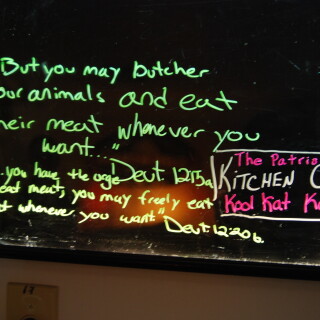 But you may butcher
our animals and eat
heir meat whenever you
want..." Deut 12:15a
..you have the urge
eat meat, you may freely eat
t whenever you want" Deut 12:20b.
The Patrio
KITCHEN
Kool Kat
18